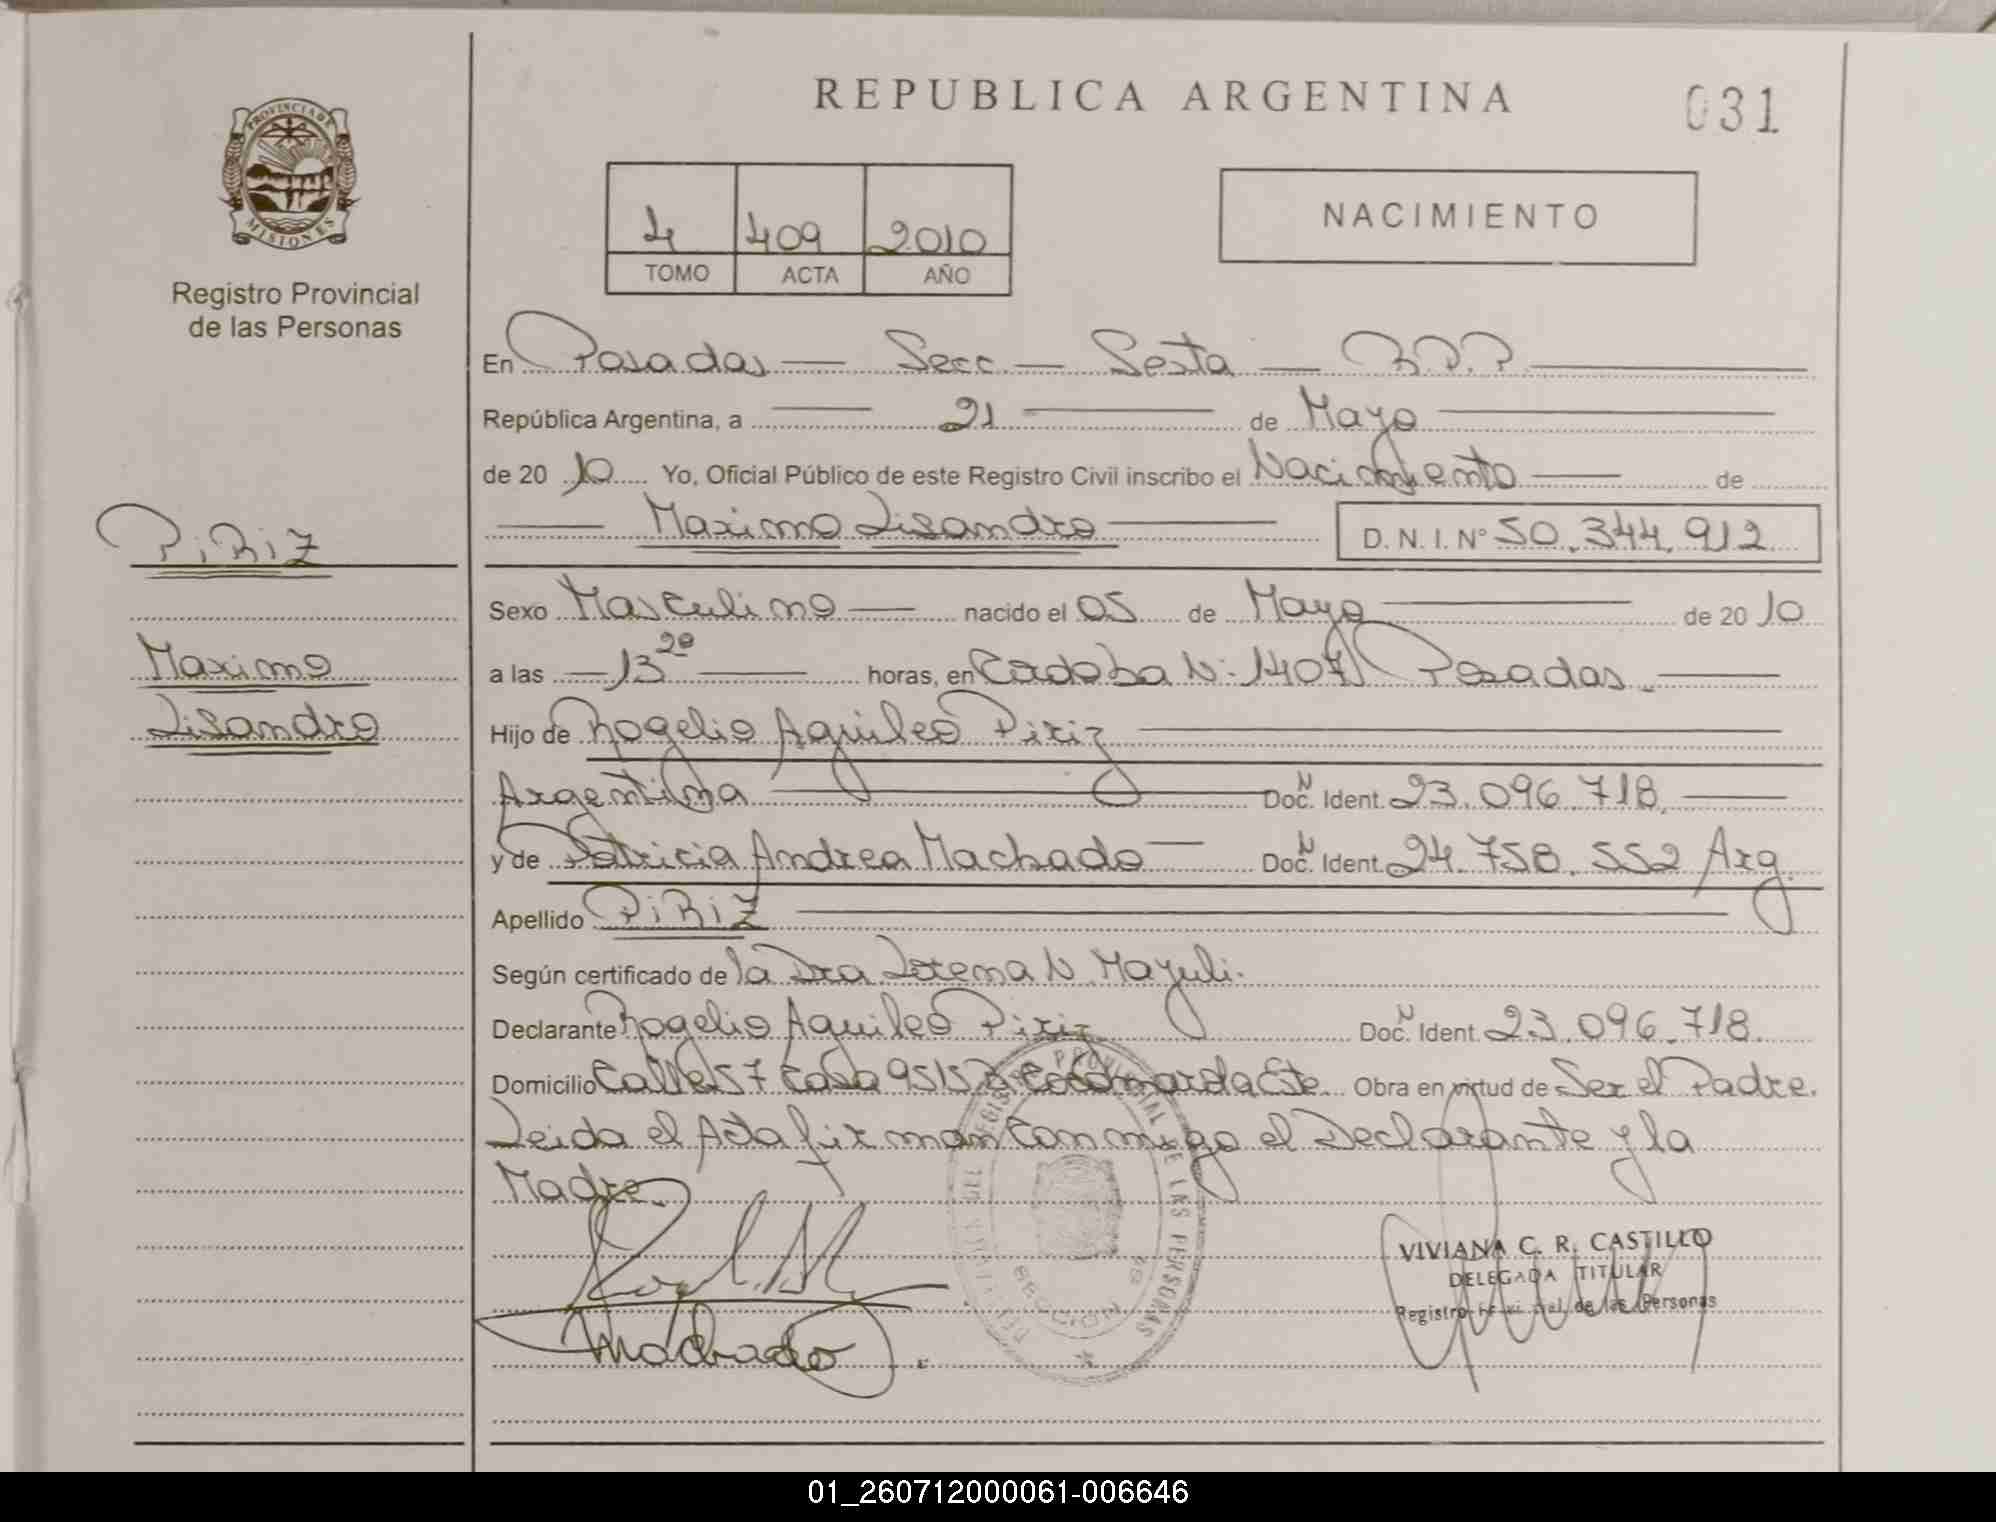 REPUBLICA ARGENTINA
031
PROVINCIA DE
MISIONES
Registro Provincial
de las Personas
4 409 2010
TOMO ACTA AÑO
NACIMIENTO
En Posadas — Secc — Sesta — R.P.P.
República Argentina, a — 21 — de Mayo —
de 20 10 Yo, Oficial Público de este Registro Civil inscribo el Nacimiento — de
— Maximo Lisandro — D. N. I. Nº 50.344.912
PiRiZ
Maximo
Lisandro
Sexo Masculino — nacido el 05 de Mayo — de 20 10
a las — 13 20 — horas, en Cordoba N: 1407 Posadas. —
Hijo de Rogelio Aquileo Piriz —
Argentina — Doc. N Ident. 23.096.718. —
y de Patricia Andrea Machado — Doc. N Ident. 24.758.552 Arg.
Apellido PiRiZ —
Según certificado de la Dra Lorena N. Mayuli.
Declarante Rogelio Aquileo Piriz Doc. N Ident. 23.096.718.
Domicilio Calle 57 Casa 9515 Este. Obra en virtud de Ser el Padre.
Leida el Acta firman conmigo el Declarante y la
Madre.
Machado
REGISTRO PROVINCIAL DE LAS PERSONAS
SECCION
VIVIANA C. R. CASTILLO
DELEGADA TITULAR
Registro Provincial de las Personas
01_260712000061-006646